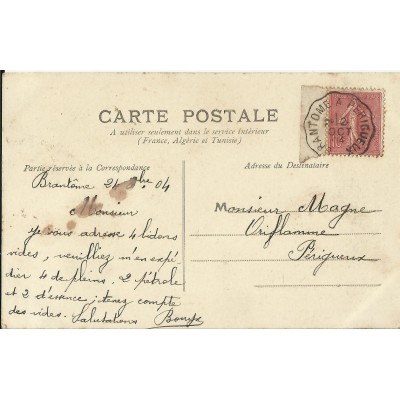 CARTE POSTALE
A utiliser seulement dans le service intérieur
(France, Algérie et Tunisie)
Partie réservée à la Correspondance
Adresse du Destinataire
BRANTOME A PERIGUEUX
OCT
04
Brantôme 21 8bre 04
Monsieur
Je vous adresse 4 bidons
vides, veuilliez m'en expé
dier 4 de pleins. 2 pétrole
et 2 d'essence; tenez compte
des vides. Salutations
Monsieur Magne
Oriflamme
Périgueux